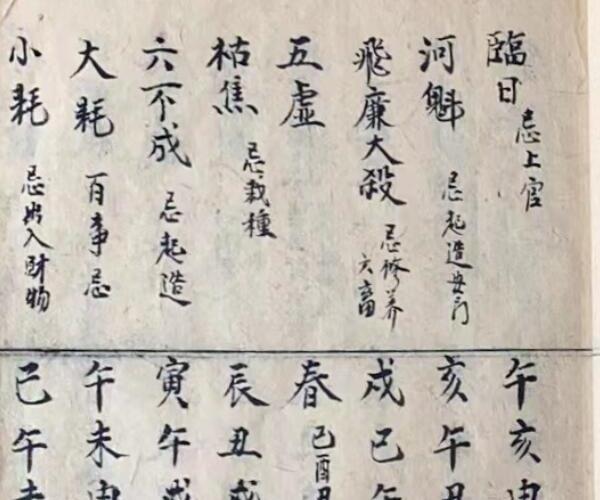 臨日 忌上官 午亥申
河魁 忌起造安门 亥午丑
飛廉大殺 忌修养六畜 戌巳午
五虛 春巳酉丑
枯焦 忌栽種 辰丑戌
六不成 忌起造 寅午戌
大耗 百事忌 午未申
小耗 忌出入財物 巳午未